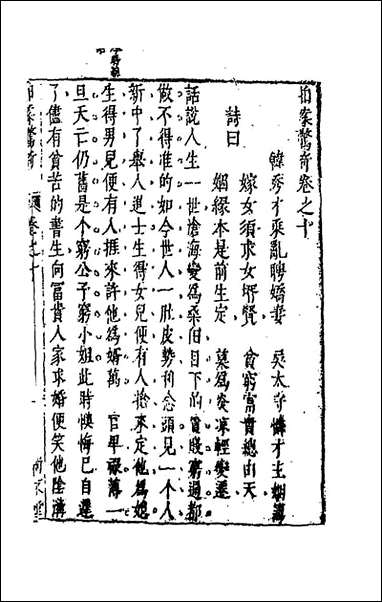 拍案驚奇卷之十
韓秀才乘亂聘嬌妻　吳太守憐才主姻簿
詩曰
嫁女須求女壻賢　貧窮富貴總由天
姻緣本是前生定　莫爲炎凉輕變遷
話說人生一世滄海變爲桑田目下的貴賤窮通都
做不得准的如今世人一肚皮勢利念頭見一個人
新中了舉人進士生得女兒便有人搶來定他爲媳
生得男兒便有人捱來許他爲婿萬一官卑祿薄一
旦夭亡仍舊是个窮公子窮小姐此時懊悔已自遲
了儘有貧苦的書生向富貴人家求婚便笑他陰溝
拍案驚奇
卷之十
一